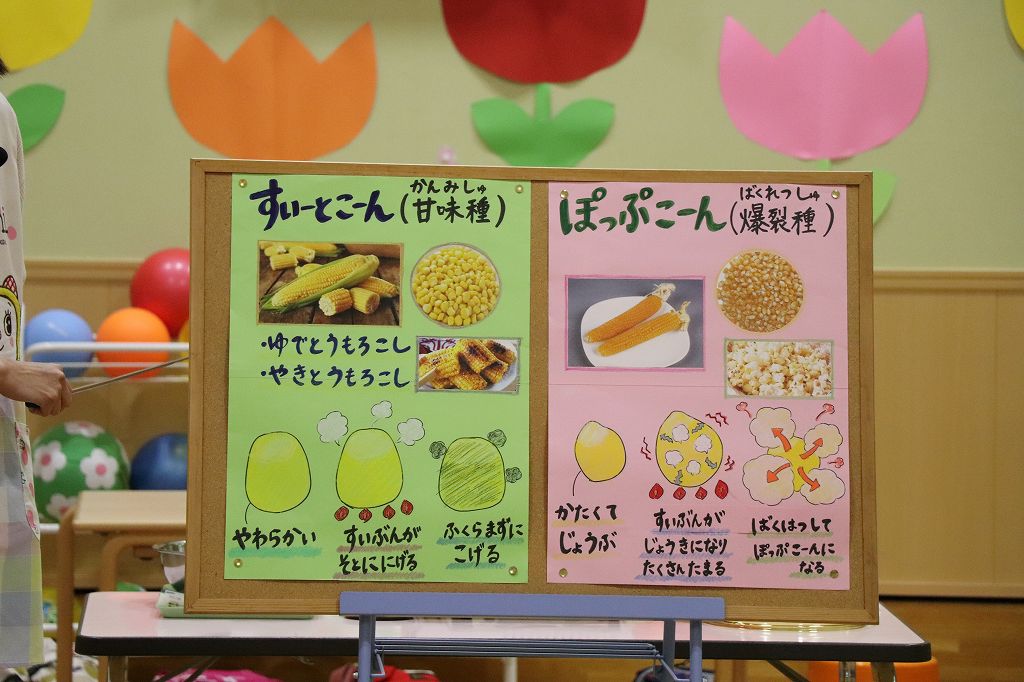 すいーとこーん(甘味種)
かんみしゅ
・ゆでとうもろこし
・やきとうもろこし
やわらかい
すいぶんが
そとににげる
ふくらまずに
こげる
ぽっぷこーん(爆裂種)
ばくれつしゅ
かたくて
じょうぶ
すいぶんが
じょうきになり
たくさんたまる
ばくはつして
ぽっぷこーんに
なる